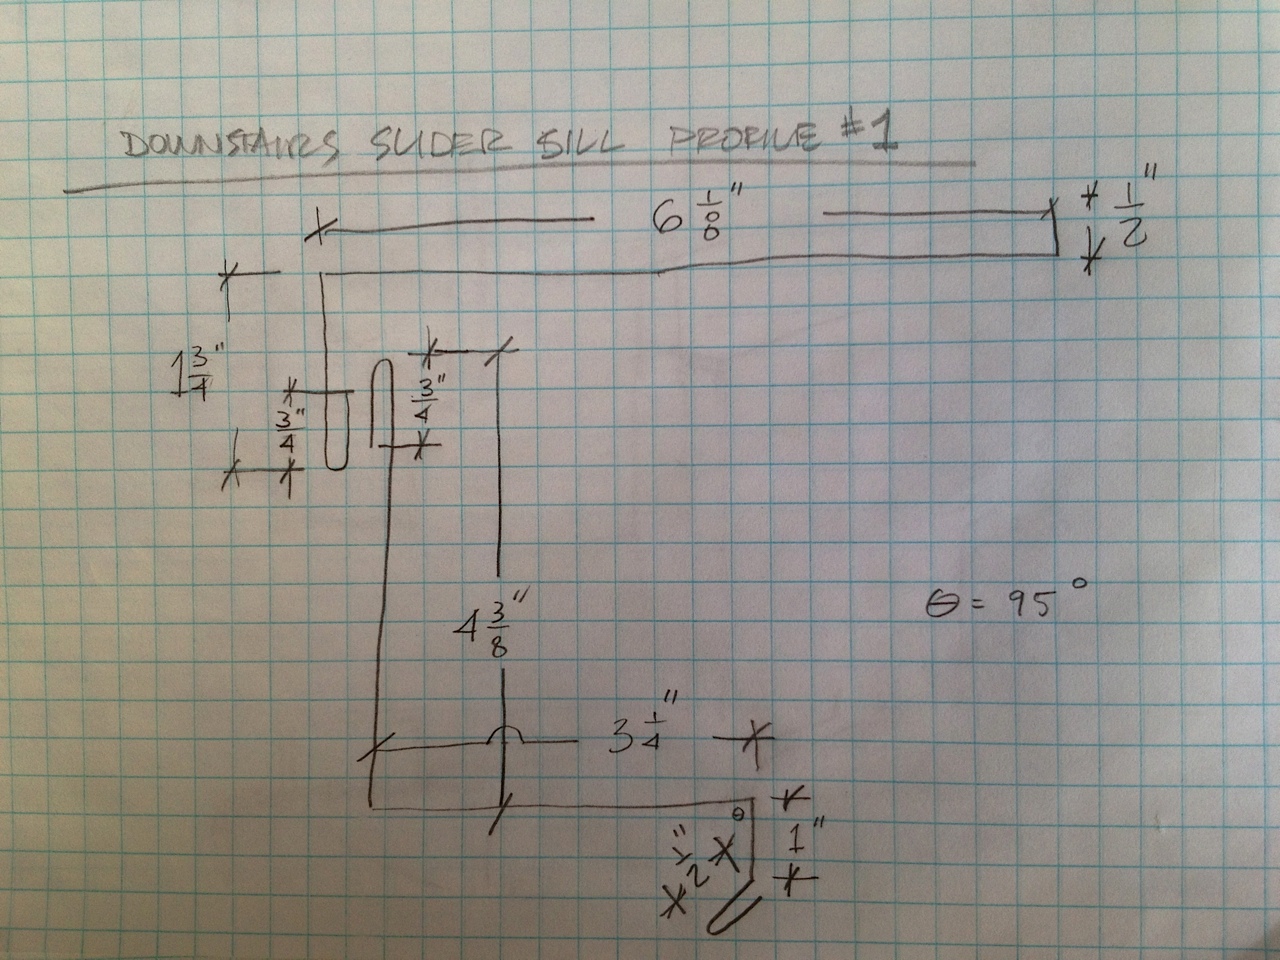 DOWNSTAIRS SLIDER SILL PROFILE #1
6 1/8"
1/2"
1 3/4"
3/4"
3/4"
4 3/8"
θ = 95°
3 1/4"
θ
1"
1/2"